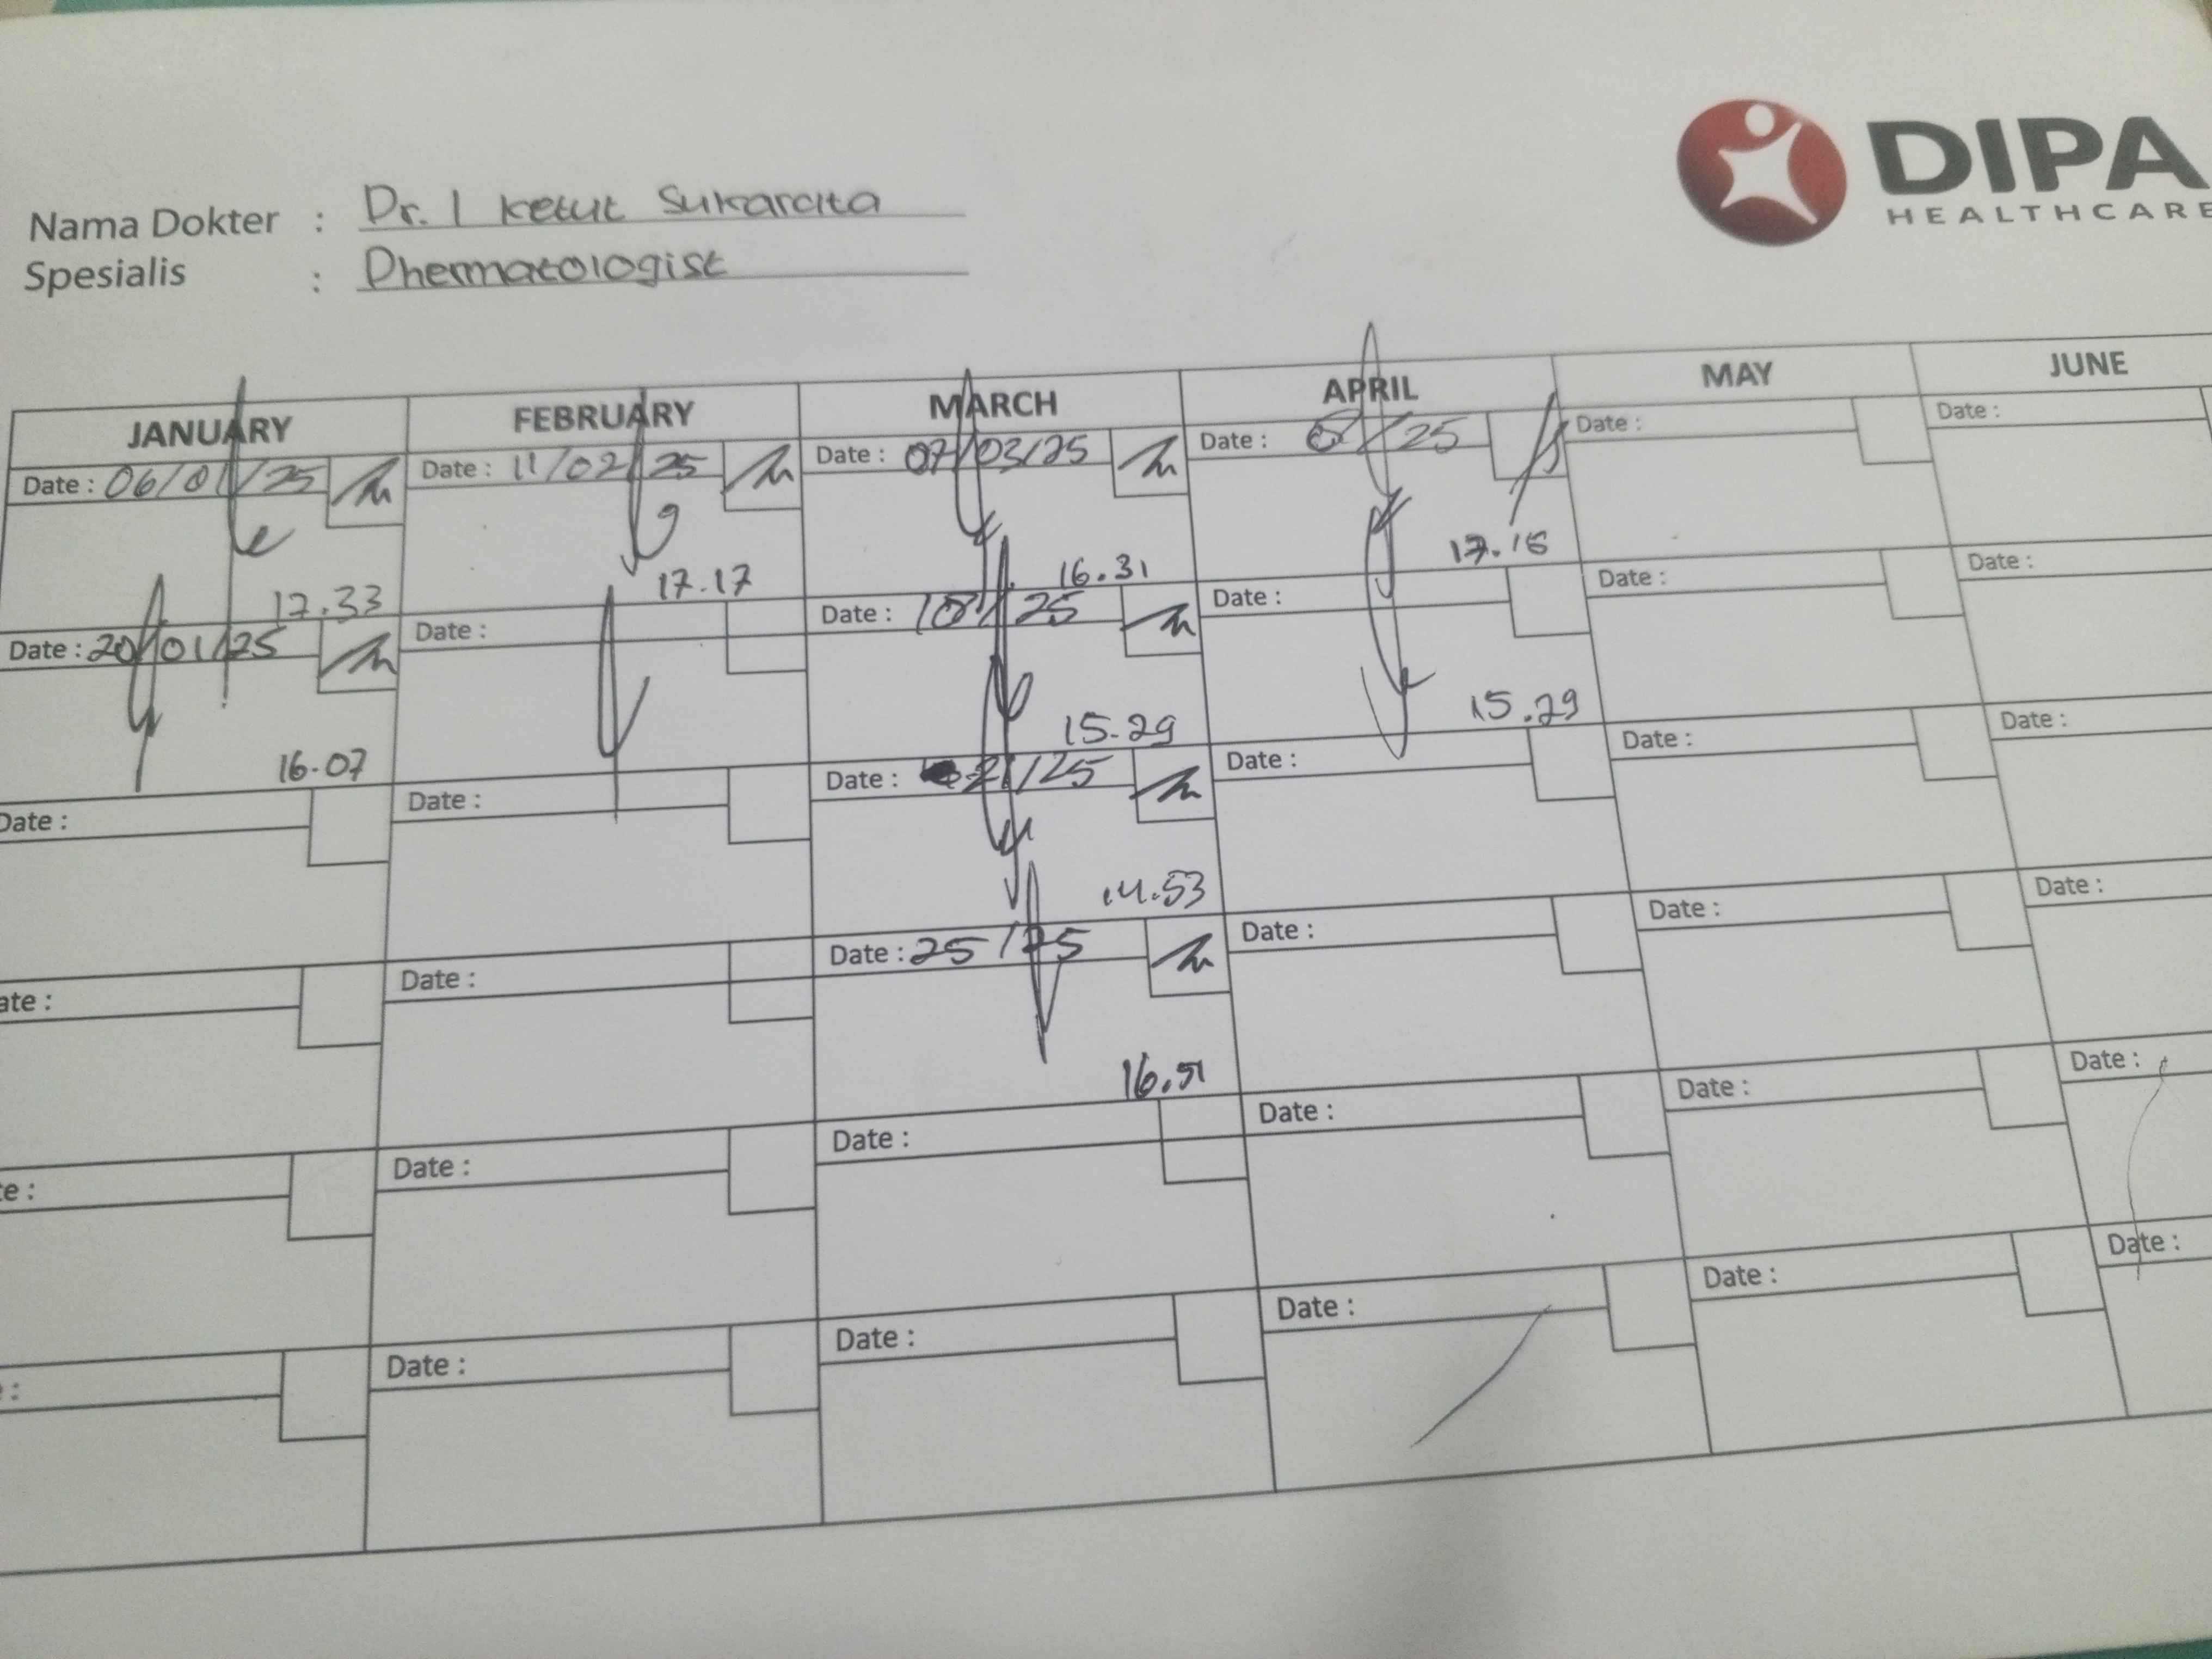 DIPA
HEALTHCARE
Nama Dokter : Dr. I Ketut Sukardita
Spesialis : Dhermatologist
JANUARY FEBRUARY MARCH APRIL MAY JUNE
Date : 06/01/25 Date : 11/02/25 Date : 07/03/25 Date : /25 Date : Date :
17.33 17.17 16.31 17.15
Date : 20/01/25 Date : Date : 10/25 Date : Date : Date :
16.07 15.29 15.29
Date : Date : Date : 21/25 Date : Date : Date :
14.53
ate : Date : Date : 25/25 Date : Date : Date :
16.51
te : Date : Date : Date : Date : Date :
: Date : Date : Date : Date : Date :